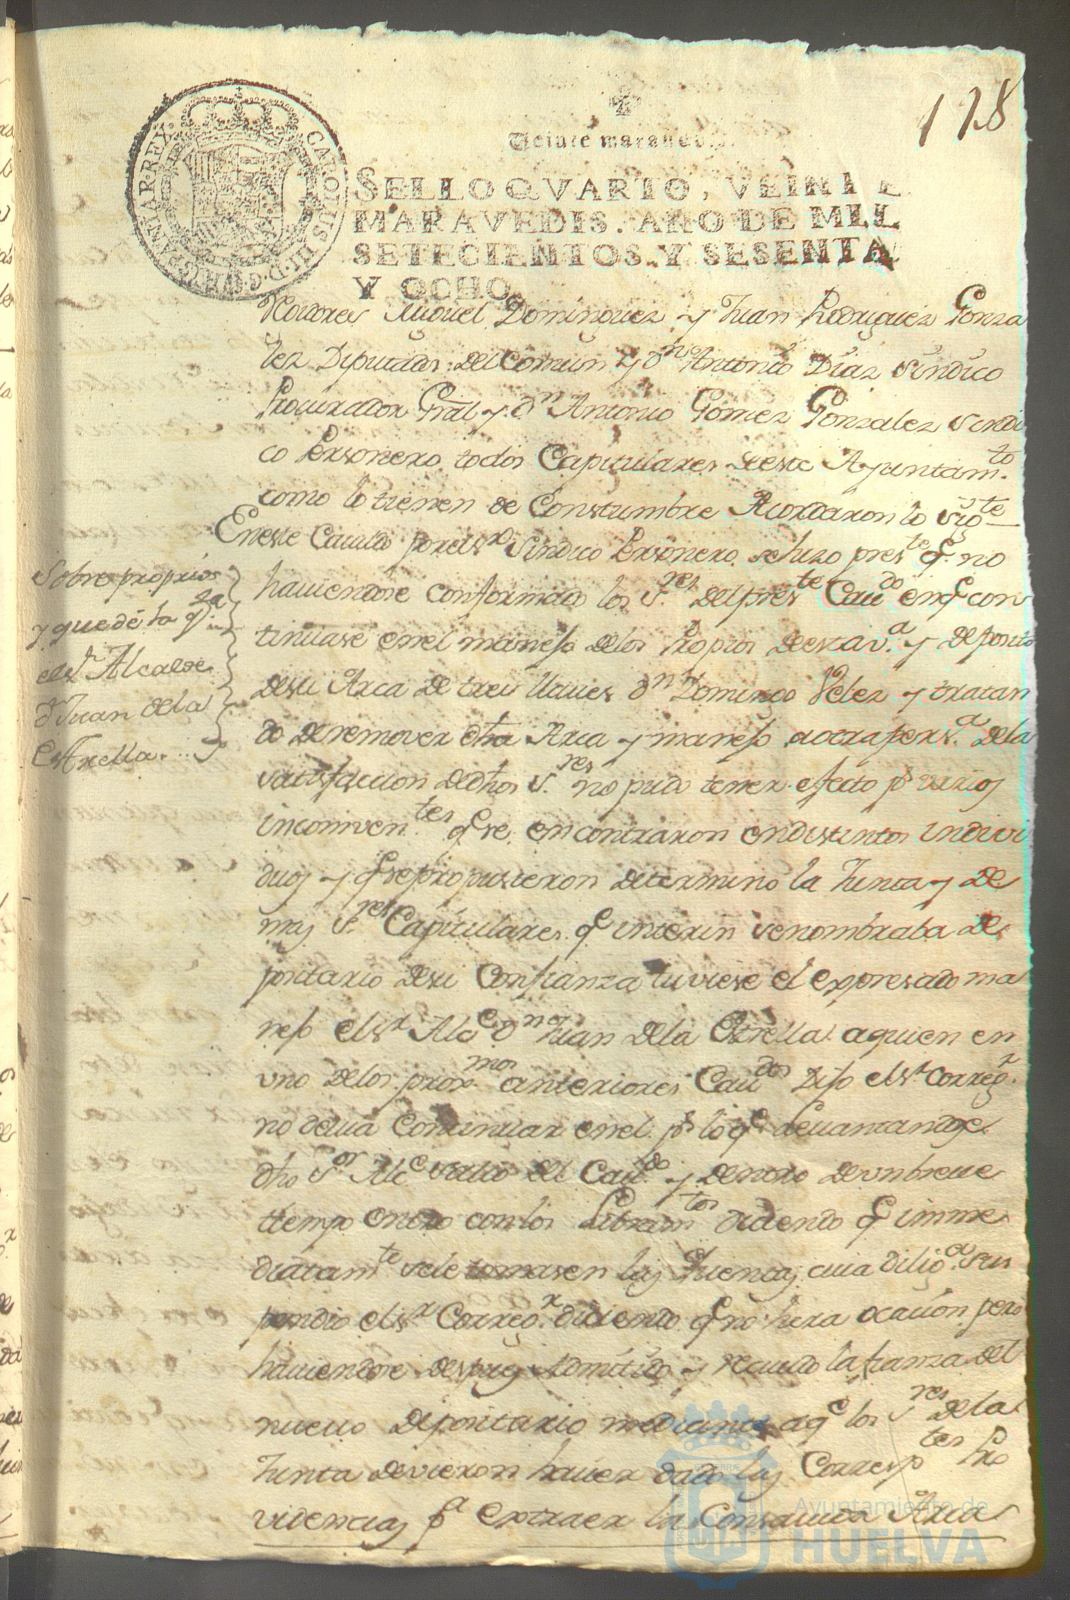 128
Veinte maraved
SELLO QVARTO, VEINTE
MARAVEDIS, AÑO DE MIL
SETECIENTOS Y SESENTA
Y OCHO.
CAROLUS III D.G. HISPANIAR REX
Miguel Dominguez y Juan Rodriguez Gonza
lez Diputados del comun y Dn Antonio Diaz Sindico
Procurador Gral y Dn Antonio Gomez Gonzalez Sindi
co Personero todos Capitulares deste Ayuntamto
como lo tienen de Constumbre Acordaron lo sigte
En este Cavildo por el Sr Sindico Personero se hizo preste q no
haviendose conformado los Sres del preste Cavdo en q con
tinuase en el manejo de los Propios desta va y deposito
de su Arca de tres llaves Dn Domingo Velez y tratan
do de remover dha Arca y manejo a otra persa de la
satisfaccion de dhos Sres no pudo tener efecto pr varios
inconventes q se encontraron en distintos indivi
duos y q se propusieron determino la Junta y de
mas Sres Capitulares q interin se nombraba de
positario de su Confianza tuviese el expresado ma
nejo el Sr Alce Dn Juan de la Estrella a quien en
uno de los proxmos anteriores Cavdos Dijo el Sr Corregr
no devia Continuar en el pr lo q levantandose
dho Sor Alce salio del Cavdo y dentro de un breve
tiempo entro con los Libramtos diciendo q imme
diatamte se le tomasen las Quentas, cuia diliga sus
pendio el Sr Corregr diciendo q no hera ocasion, pero
haviendose despues Admitido y recivido la fianza del
nuevo depositario mediante a q los Sres de la
Junta devieron haver dado las Correspotes Pro
videncias pa Extraer la Consavida Arca
Sobre propios
y que dé la qta
el Sr Alcalde
D Juan de la
Estrella
Ayuntamiento de
HUELVA